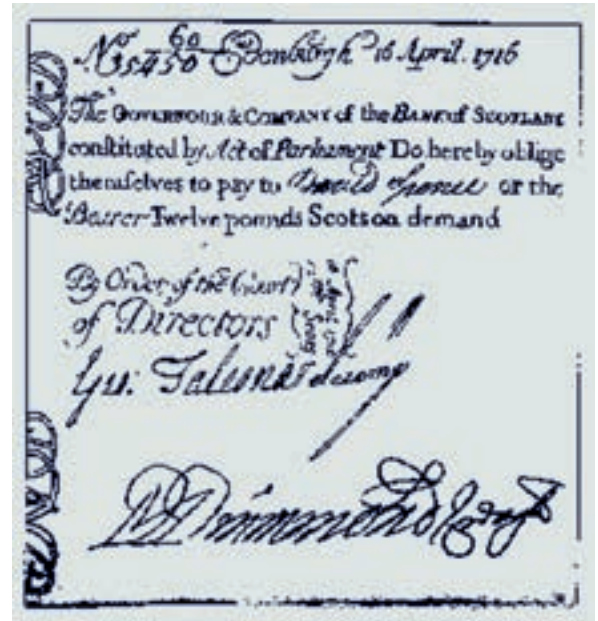 60
No 35450 Edenburgh 16 April. 1716
The GOVERNOUR & COMPANY of the BANK of SCOTLAND
constituted by Act of Parliament Do hereby oblige
themselves to pay to David Spence or the
Bearer Twelve pounds Scots on demand
By Order of the Court
of Directors